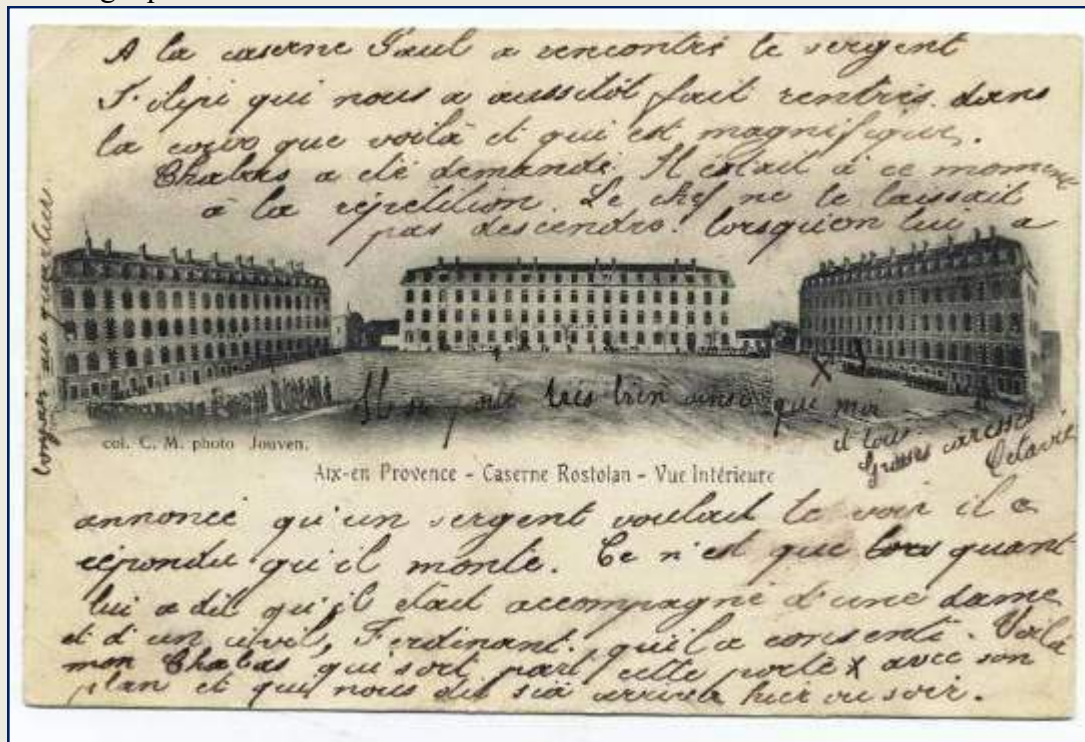 A la caserne Paul a rencontré le sergent
Filipi qui nous a aussitôt fait rentrés dans
la cour que voilà et qui est magnifique.
Chabas a été demandé. Il était à ce moment
à la répétition. Le chef ne le laissait
pas descendre. lorsqu'on lui a
très bien ainsi que moi
et tous.
Grosses caresses
Octavie
col. C. M. photo Jouven.
Aix-en Provence - Caserne Rostolan - Vue Intérieure
annoncé qu'un sergent voulait le voir il a
répondu qu'il monte. Ce n'est que quant
lui a dit qu'il était accompagné d'une dame
et d'un civil, Ferdinant, qu'il a consenti. Voilà
mon Chabas qui sort part cette porte X avec son
plan et qui nous dit hier au soir.